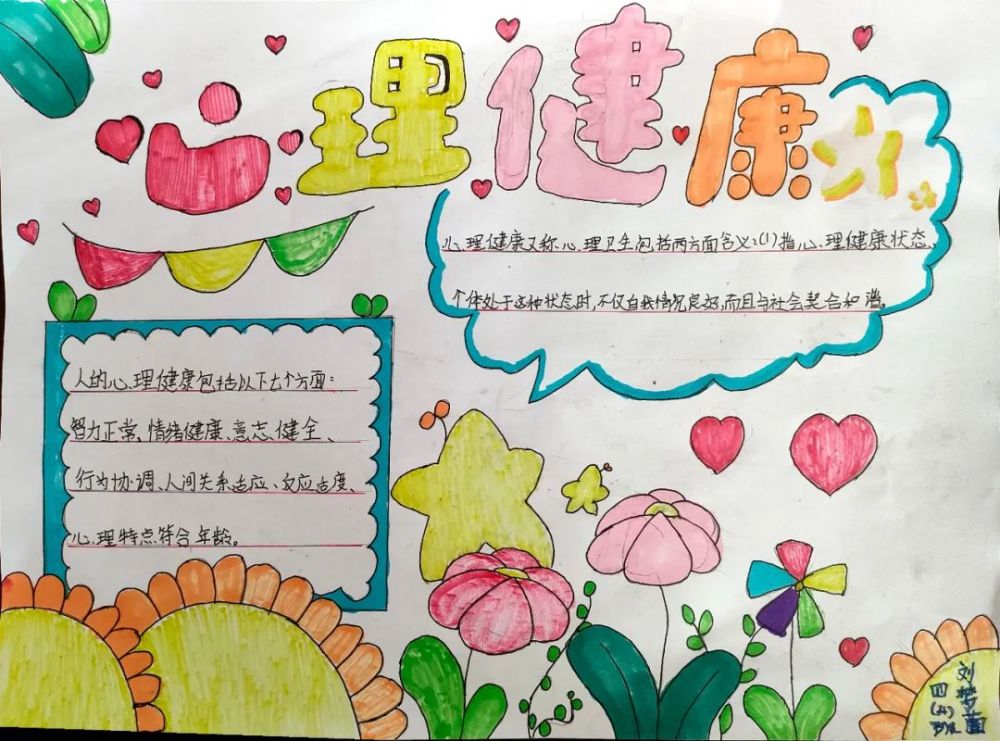 心理健康
心理健康又称心理卫生包括两方面含义:(1)指心理健康状态、
个体处于这种状态时,不仅自我情况良好,而且与社会契合和谐。
人的心理健康包括以下七个方面:
智力正常、情绪健康、意志健全、
行为协调、人间关系适应、反应适度、
心理特点符合年龄。
刘
四
班